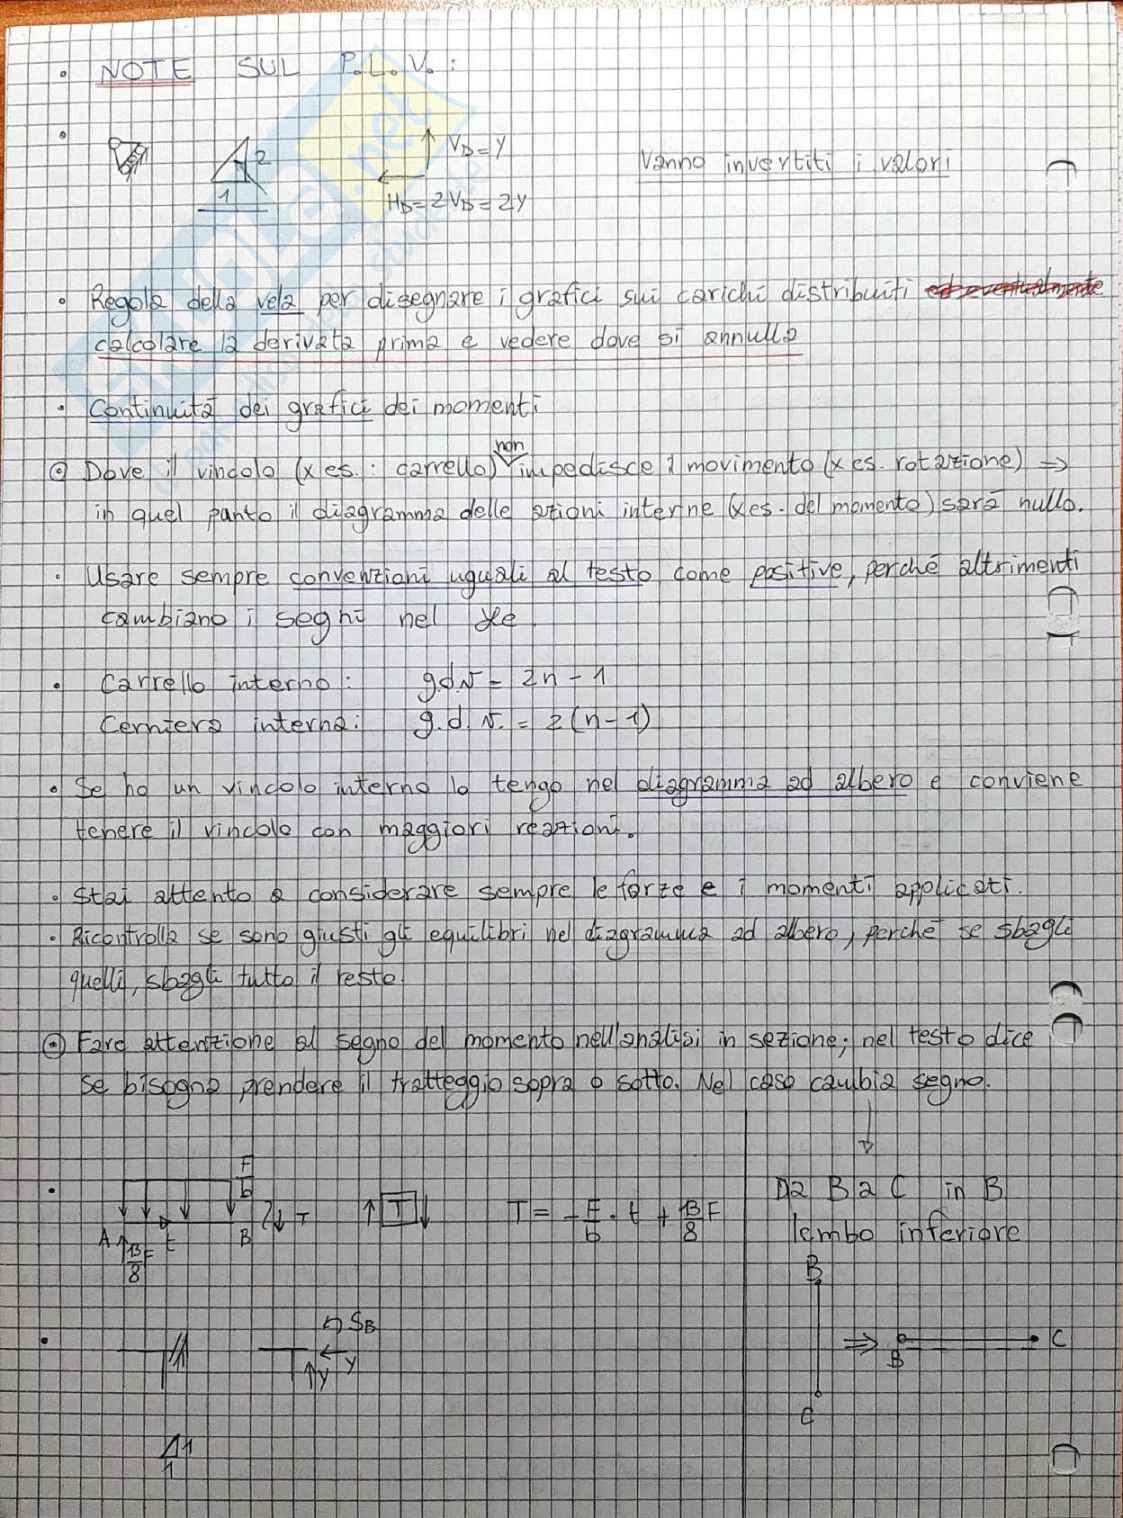 • NOTE SUL P.L.V. :
• 2
1
V_D = y
H_D = 2V_D = 2y
Vanno invertiti i valori
• Regola della vela per disegnare i grafici sui carichi distribuiti
calcolare la derivata prima e vedere dove si annulla
• Continuità dei grafici dei momenti
⊙ Dove il vincolo (x es.: carrello) non impedisce 1 movimento (x es. rotazione) ⇒
in quel punto il diagramma delle azioni interne (x es. del momento) sarà nullo.
• Usare sempre convenzioni uguali al testo come positive, perché altrimenti
cambiano i segni nel
• Carrello interno: g.d.v = 2n - 1
Cerniera interna: g.d.v. = 2(n-1)
• Se ho un vincolo interno lo tengo nel diagramma ad albero e conviene
tenere il vincolo con maggiori reazioni.
• Stai attento a considerare sempre le forze e i momenti applicati.
• Ricontrolla se sono giusti gli equilibri nel diagramma ad albero, perché se sbagli
quelli, sbagli tutto il resto.
⊙ Fare attenzione al segno del momento nell'analisi in sezione; nel testo dice
se bisogna prendere il tratteggio sopra o sotto. Nel caso cambia segno.
• F/b
A t B T
13/8 F
↑ T ↓
T = - F/b · t + 13/8 F
Da B a C in B
lembo inferiore
B
C
⇒ B C
• S_B
y
y
1
1